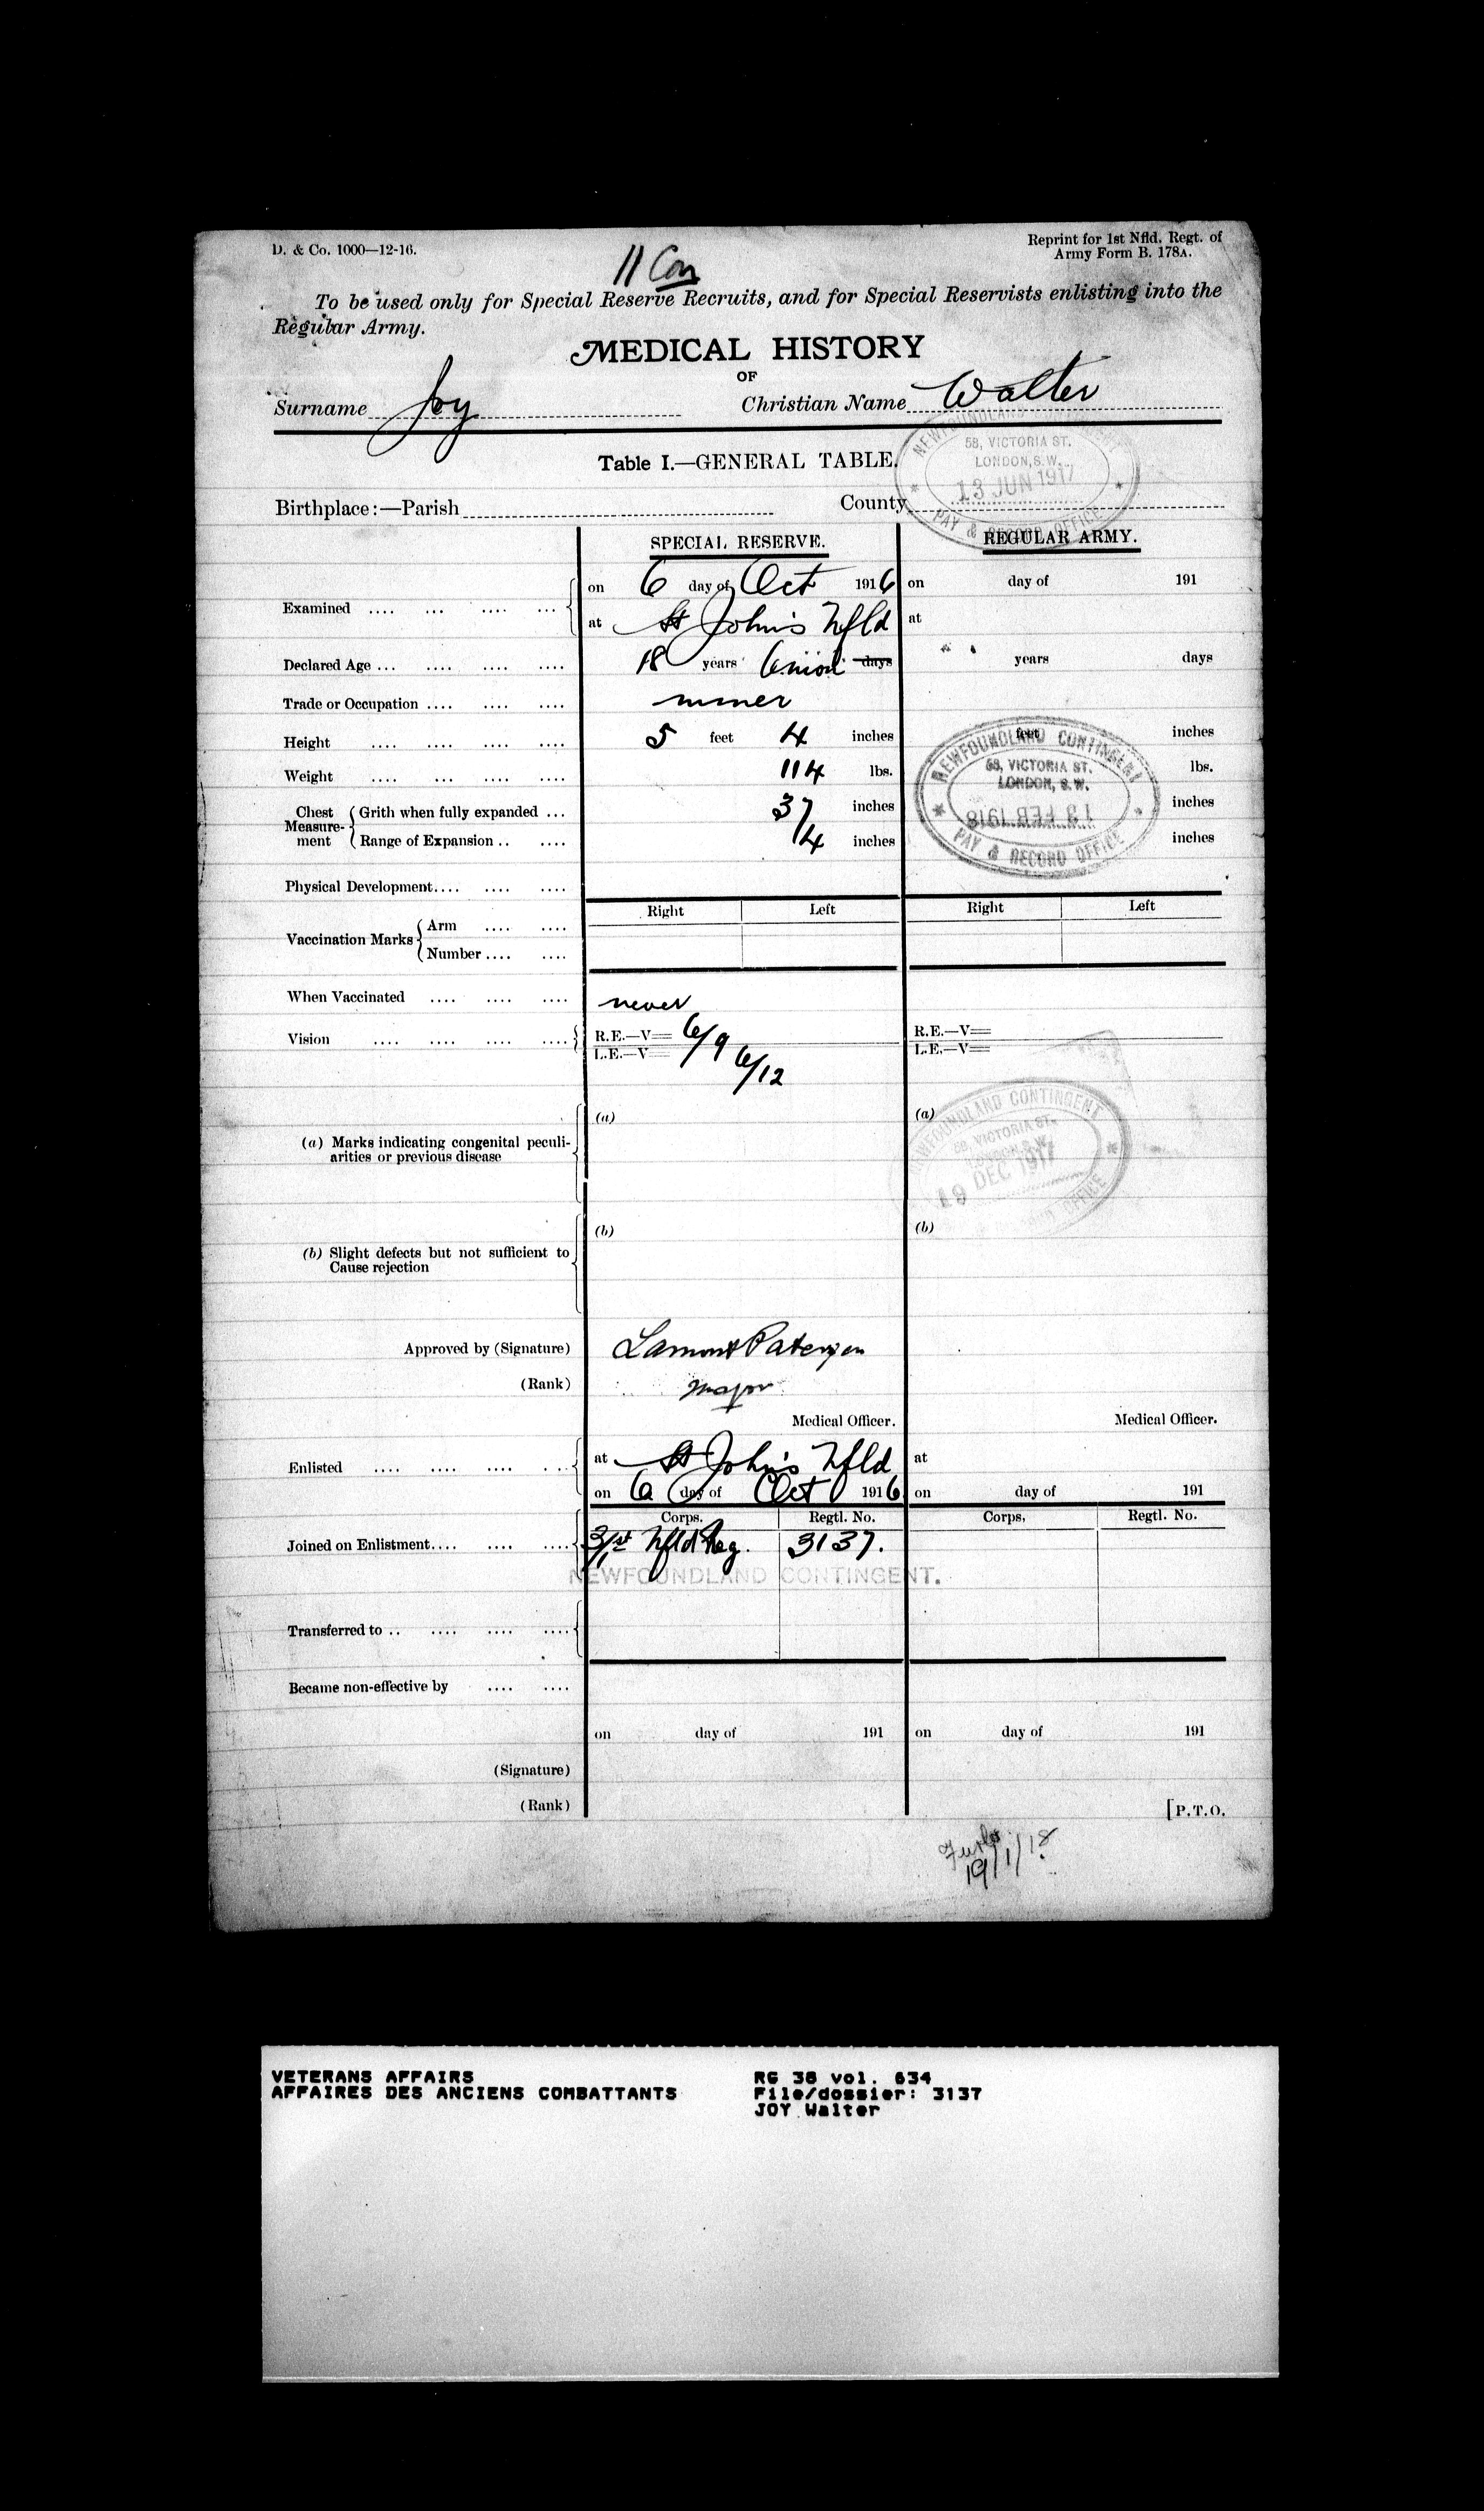 D. & Co. 1000—12-16.
Reprint for 1st Nfld. Regt. of
Army Form B. 178A.
11 Con
To be used only for Special Reserve Recruits, and for Special Reservists enlisting into the
Regular Army.
MEDICAL HISTORY
OF
Surname Joy Christian Name Walter
NEWFOUNDLAND CONTINGENT
58, VICTORIA ST.
LONDON, S.W.
13 JUN 1917
PAY & RECORD OFFICE
Table I.—GENERAL TABLE.
Birthplace:—Parish County
SPECIAL RESERVE. REGULAR ARMY.
Examined .... ... .... ... on 6 day of Oct 1916 on day of 191
at St John's Nfld at
Declared Age ... .... .... .... 18 years 6 days years days
Trade or Occupation .... .... .... miner
Height .... .... .... .... 5 feet 4 inches feet inches
Weight .... ... .... .... 114 lbs. lbs.
Chest Measurement Grith when fully expanded ... 37 inches inches
Range of Expansion .. .... 4 inches inches
NEWFOUNDLAND CONTINGENT
58, VICTORIA ST.
LONDON, S.W.
13 FEB 1918
PAY & RECORD OFFICE
Physical Development.... .... ....
Right Left Right Left
Vaccination Marks Arm .... ....
Number .... ....
When Vaccinated .... .... .... never
Vision .... .... .... R.E.—V= 6/9 R.E.—V=
L.E.—V= 6/12 L.E.—V=
NEWFOUNDLAND CONTINGENT
58, VICTORIA ST.
LONDON, S.W.
19 DEC 1917
OFFICE
(a) Marks indicating congenital peculi- (a) (a)
arities or previous disease
(b) Slight defects but not sufficient to (b) (b)
Cause rejection
Approved by (Signature) Lamont Paterson
(Rank) Major
Medical Officer. Medical Officer.
Enlisted .... .... .... ... at St John's Nfld at
on 6 day of Oct 1916 on day of 191
Corps. Regtl. No. Corps, Regtl. No.
Joined on Enlistment.... .... .... Nfld Reg. 3137.
NEWFOUNDLAND CONTINGENT.
Transferred to .. .... .... ....
Became non-effective by .... ....
on day of 191 on day of 191
(Signature)
(Rank)
[P.T.O.
19/1/18
VETERANS AFFAIRS
AFFAIRES DES ANCIENS COMBATTANTS
RG 38 vol. 634
File/dossier: 3137
JOY Walter